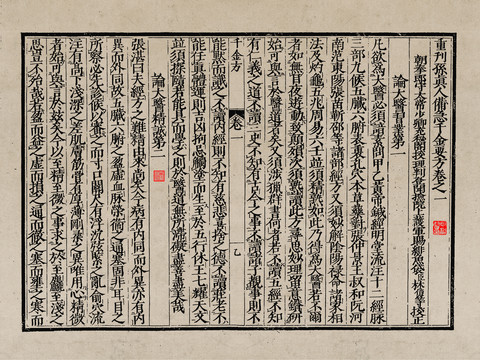 重刊孫真人備急千金要方卷之一
朝奉郎守太常少卿充秘閣校理判登聞檢院上護軍賜緋魚袋臣林億等校正
論大醫習業第一
凡欲為大醫必須諳素問甲乙黃帝鍼經明堂流注十二經脉
三部九候五臟六腑表裏孔穴本草藥對張仲景王叔和阮河
南范東陽張苗靳邵等諸部經方又須妙解陰陽祿命諸家相
法及灼龜五兆周易六壬並須精熟如此乃得為大醫若不爾
者如無目夜遊動致顛殞次須熟讀此方尋思妙理留意鑽研
始可與言於醫道者矣又須涉獵群書何者若不讀五經不知
有仁義之道不讀三史不知有古今之事不讀諸子覩事則不
千金方 卷一 乙
能默而識之不讀內經則不知有慈悲喜捨之德不讀莊老不
能任真體運則吉凶拘忌觸塗而生至於五行休王七耀天文
並須探賾若能具而學之則於醫道無所滯礙盡善盡美矣
論大醫精誠第二
張湛曰夫經方之難精由來尚矣今病有內同而外異亦有內
異而外同故五臟六腑之盈虛血脉榮衛之通塞固非耳目之
所察必先診候以審之而寸口關尺有浮沉絃緊之亂俞穴流
注有高下淺深之差肌膚筋骨有厚薄剛柔之異唯用心精微
者始可與言於茲矣今以至精至微之事求之於至麤至淺之
思豈不殆哉若盈而益之虛而損之通而徹之塞而壅之寒而